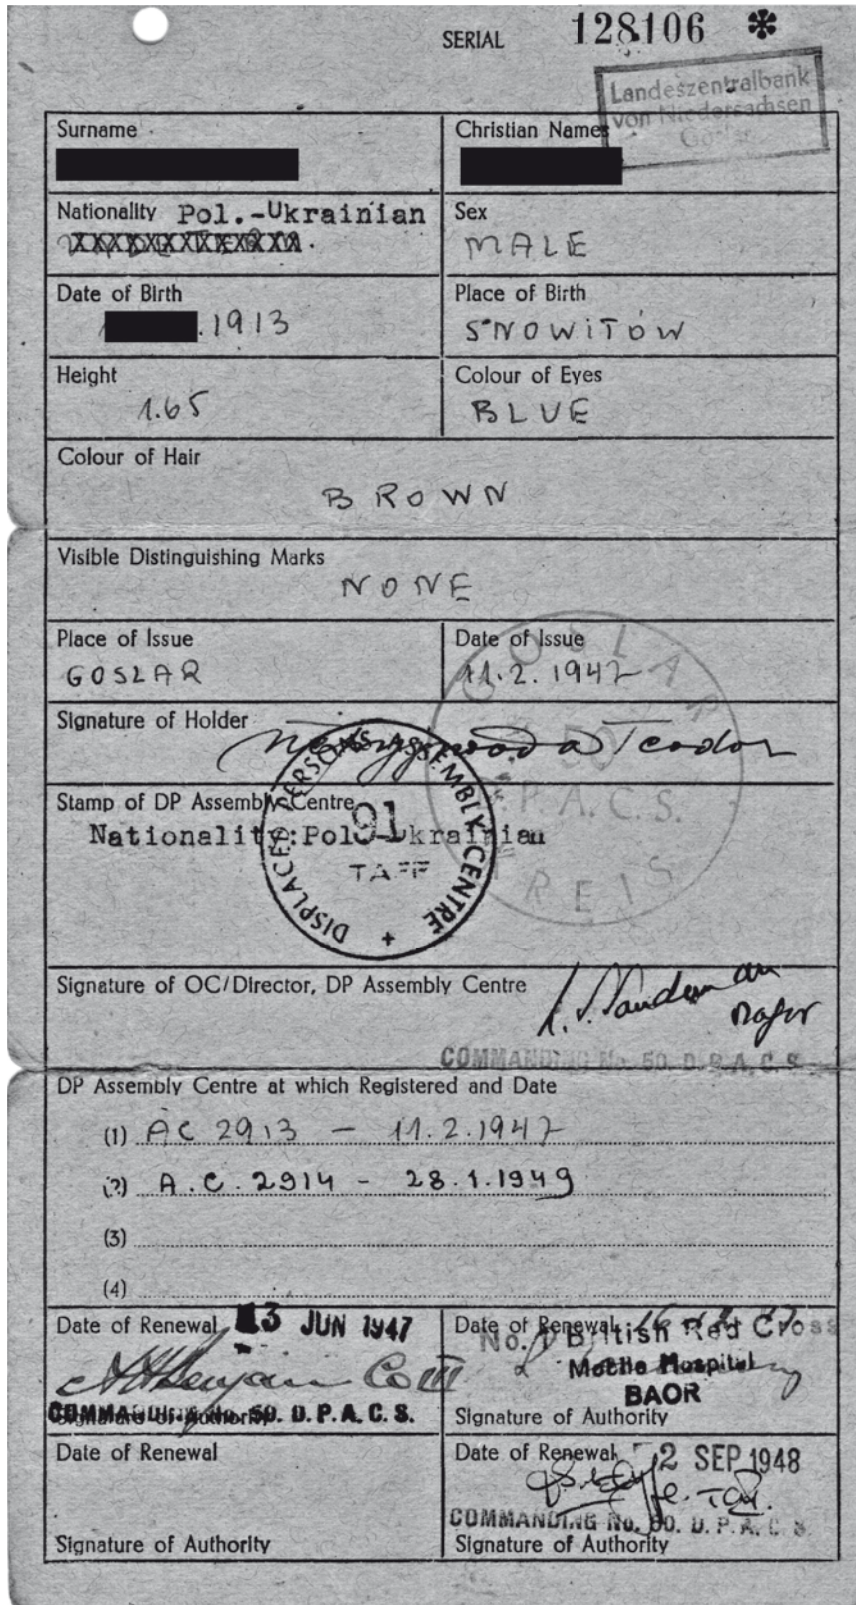 SERIAL 128106 *
Landeszentralbank
von Niedersachsen
Goslar
Surname
Christian Names
Nationality Pol.-Ukrainian
Sex
MALE
Date of Birth
.1913
Place of Birth
SNOWITÓW
Height
1.65
Colour of Eyes
BLUE
Colour of Hair
BROWN
Visible Distinguishing Marks
NONE
Place of Issue
GOSLAR
Date of Issue
11.2.1947
Signature of Holder
Teodor
Stamp of DP Assembly Centre
Nationality:Pol.-Ukrainian
DISPLACED PERSONS ASSEMBLY CENTRE
91
TAFF
GOSLAR
50
D.P.A.C.S.
KREIS
Signature of OC/Director, DP Assembly Centre
Major
COMMANDING No. 50. D.P.A.C.S.
DP Assembly Centre at which Registered and Date
(1) AC 2913 - 11.2.1947
(2) A.C. 2914 - 28.1.1949
(3)
(4)
Date of Renewal 13 JUN 1947
COMMANDING No. 50. D.P.A.C.S.
Signature of Authority
Date of Renewal
No. 1 British Red Cross
Mobile Hospital
BAOR
Signature of Authority
Date of Renewal
Signature of Authority
Date of Renewal 2 SEP 1948
COMMANDING No. 50. D.P.A.C.S.
Signature of Authority